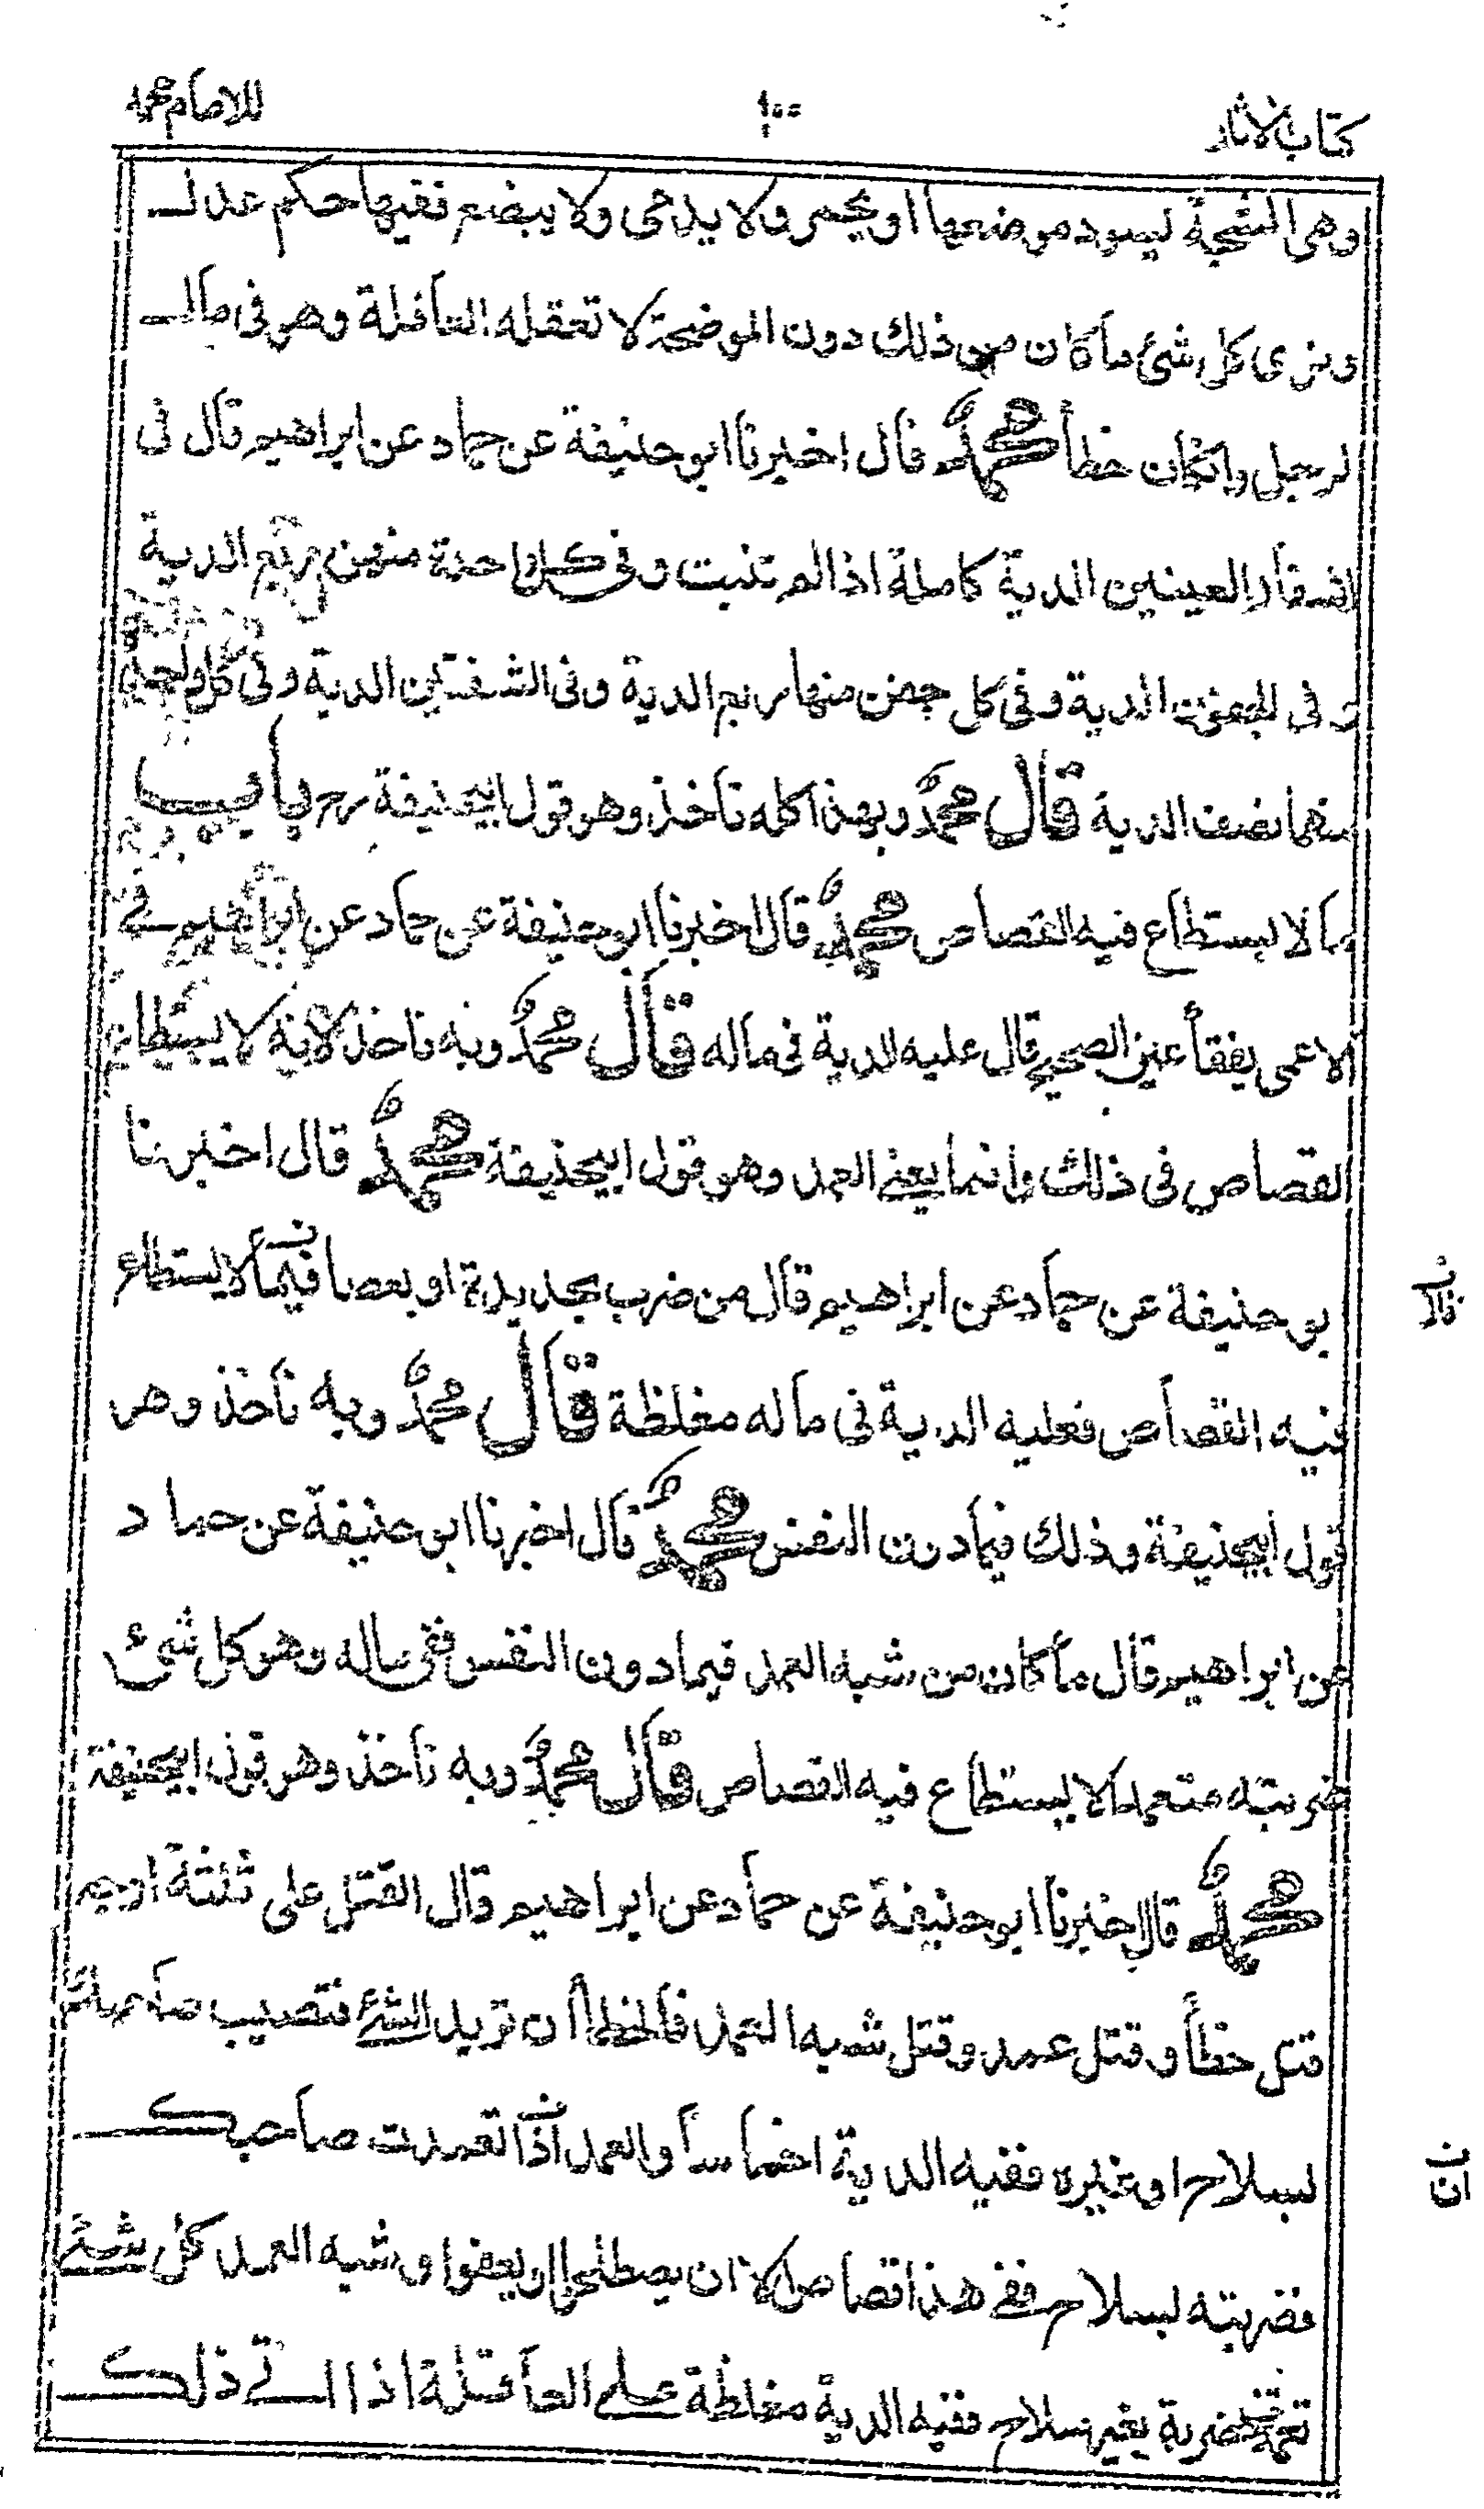 كتاب الاثار ١٠٠ للامام محمد
وهى الشجة يسود موضعها او يحمر ولا يدمى ولا يبضع ففيها حكم عدل
ونرى كل شئ ما كان من ذلك دون الموضحة لا تعقله العاقلة وهو فى مال
لرجل وانكان خطأ محمد قال اخبرنا ابو حنيفة عن حماد عن ابراهيم قال فى
اشفار العينين الدية كاملة اذا لم تنبت وفى كل واحدة منهن ربع الدية
وفى الجفون الدية وفى كل جفن منها ربع الدية وفى الشفتين الدية وفى كل واحدة
منهما نصف الدية قال محمد وبهذا كله ناخذ وهو قول ابيحنيفة رح باب
ما لا يستطاع فيه القصاص محمد قال اخبرنا ابو حنيفة عن حماد عن ابراهيم فى
الاعمى يفقأ عين الصحيح قال عليه الدية فى ماله قال محمد وبه ناخذ لانه لا يستطاع
القصاص فى ذلك وانما يعنى العمد وهو قول ابيحنيفة محمد قال اخبرنا
بو حنيفة عن حماد عن ابراهيم قال من ضرب بحديدة او بعصا فيما لا يستطاع
فيه القصاص فعليه الدية فى ماله مغلظة قال محمد وبه ناخذ وهو
قول ابيحنيفة وذلك فيما دون النفس محمد قال اخبرنا ابو حنيفة عن حماد
عن ابراهيم قال ما كان من شبه العمد فيما دون النفس ففى ماله وهو كل شئ
ضربته متعمدا لا يستطاع فيه القصاص قال محمد وبه ناخذ وهو قول ابيحنيفة
محمد قال اخبرنا ابو حنيفة عن حماد عن ابراهيم قال القتل على ثلثة اوجه
قتل خطأ وقتل عمد وقتل شبه العمد فالخطأ ان تريد الشئ فتصيب صاحبك
بسلاح او غيره ففيه الدية اخماسا والعمد اذا تعمدت صاحبك
ن
ان
فضربته بسلاح ففى هذا قصاص الا ان يصطلحوا او يعفوا وشبه العمد كل شئ
تعمدت ضربة بغير سلاح ففيه الدية مغلظة على العاقلة اذا اتى ذلك